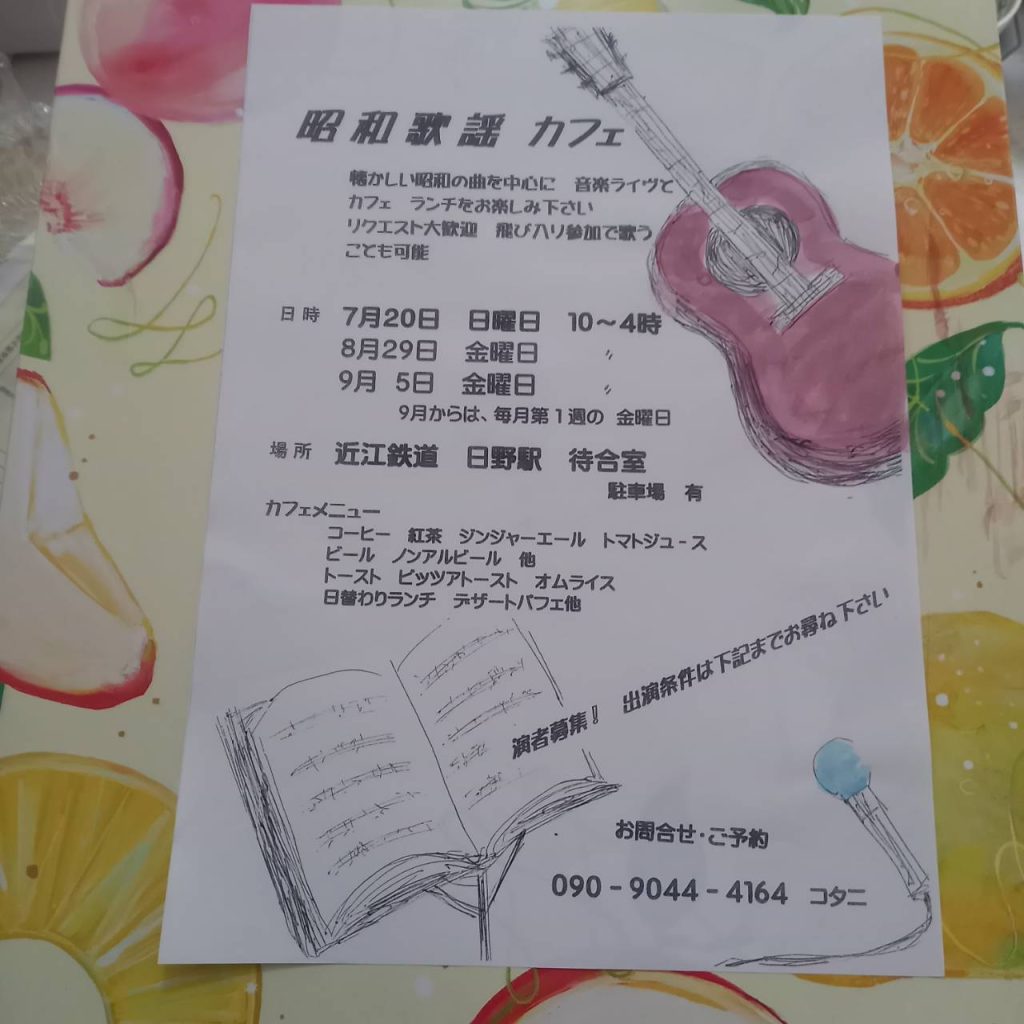 昭和歌謡 カフェ
懐かしい昭和の曲を中心に 音楽ライヴと
カフェ ランチをお楽しみ下さい
リクエスト大歓迎 飛び入り参加で歌う
ことも可能
日時 7月20日 日曜日 10～4時
8月29日 金曜日 〃
9月 5日 金曜日 〃
9月からは、毎月第1週の 金曜日
場所 近江鉄道 日野駅 待合室
駐車場 有
カフェメニュー
コーヒー 紅茶 ジンジャーエール トマトジュ-ス
ビール ノンアルビール 他
トースト ピッツアトースト オムライス
日替わりランチ デザートパフェ他
演者募集! 出演条件は下記までお尋ね下さい
お問合せ・ご予約
090-9044-4164 コタニ